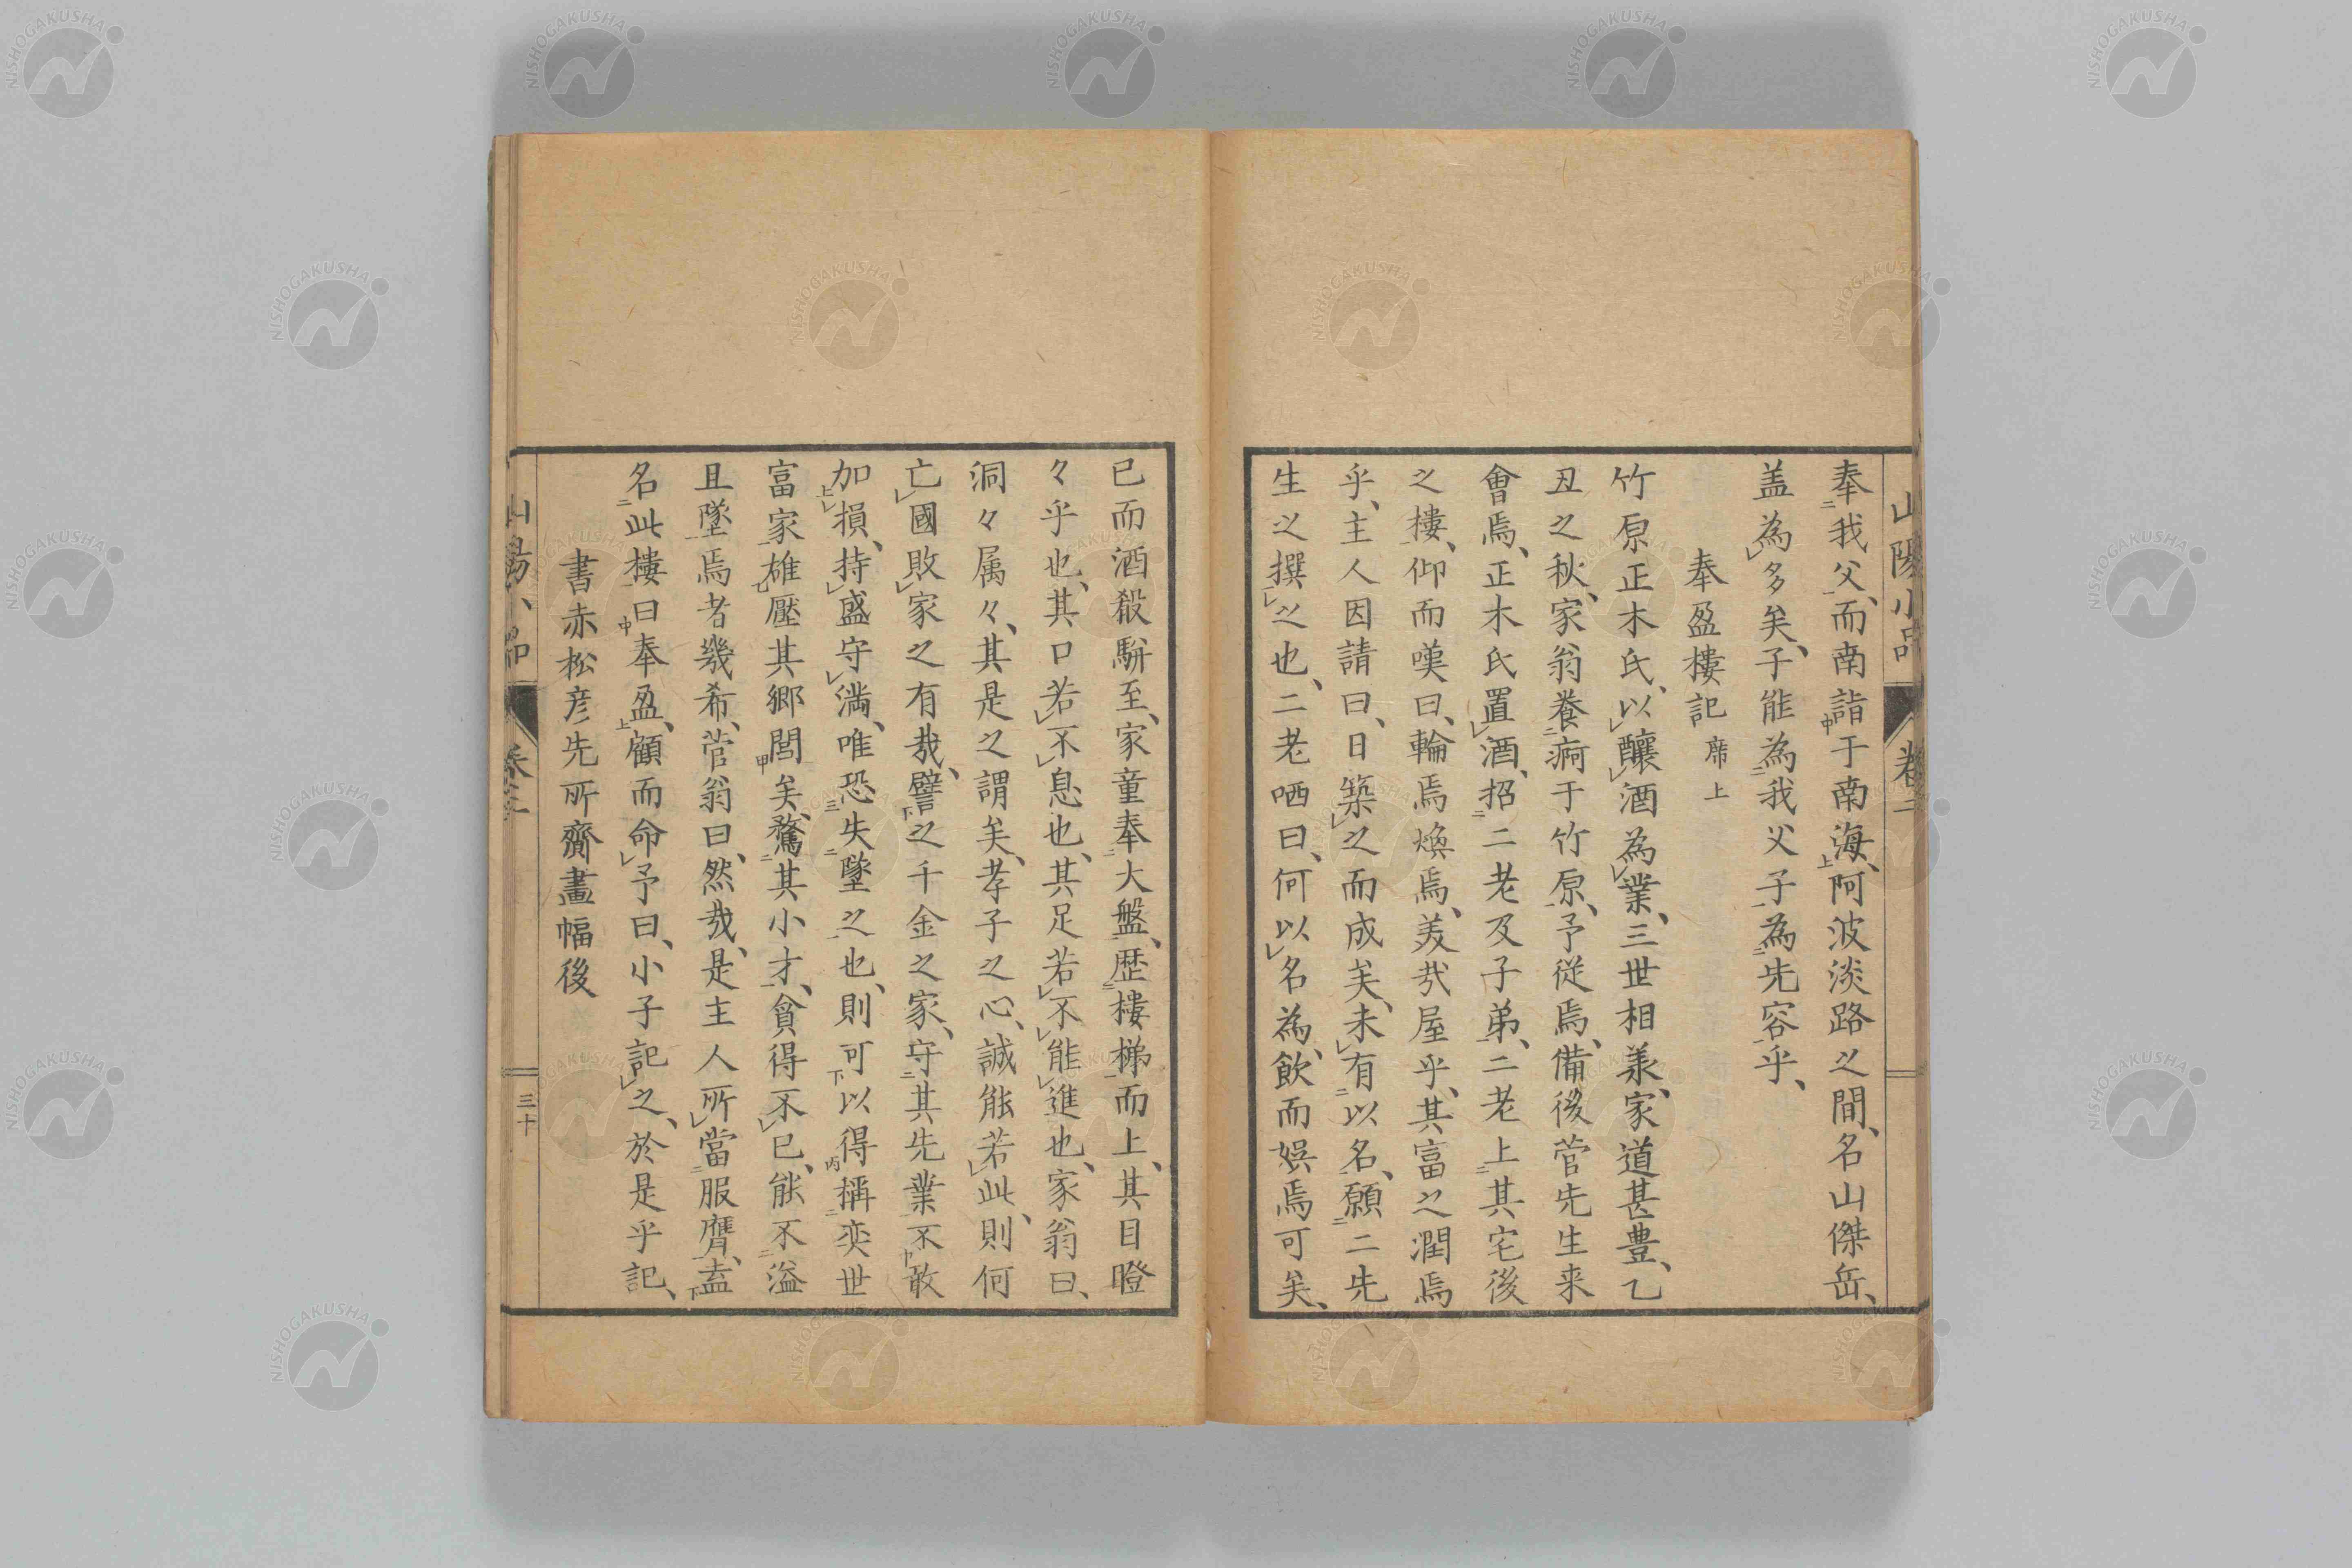 山陽小品 卷二
奉二我父一、而南詣中于南海上、阿波淡路之間、名山傑岳、
盖為レ多矣、子能為二我父子一為二先容一乎、
奉盈樓記 席上
竹原正木氏、以レ釀レ酒為レ業、三世相羕、家道甚豊、乙
丑之秋、家翁養二痾于竹原一、予從焉、備後菅先生来
會焉、正木氏置レ酒、招二二老及子弟一、二老上二其宅後
之樓一、仰而嘆曰、輪焉煥焉、美哉屋乎、其富之潤焉
乎、主人因請曰、日築レ之而成矣、未レ有二以名一、願二二先
生之撰レ之也、二老哂曰、何以レ名為、飲而娯焉可矣、
已而酒殽駢至、家童奉二大盤一、歷二樓梯一而上、其目瞪
々乎也、其口若レ不レ息也、其足若レ不レ能レ進也、家翁曰、
洞々属々、其是之謂矣、孝子之心、誠能若レ此、則何
亡レ國敗レ家之有哉、譬下之千金之家、守二其先業一不中敢
加上レ損、持レ盛守レ満、唯恐三失二墜之一也、則可下以得丙稱二奕世
富家一雄乙壓其鄉閭甲矣、騖二其小才一、貪得不レ已、能不二溢
且墜一焉者幾希、菅翁曰、然哉、是主人所レ當二服膺一、盍下
名二此樓一曰中奉盈上、顧而命レ予曰、小子記レ之、於是乎記、
書赤松彦先所齎畫幅後
三十